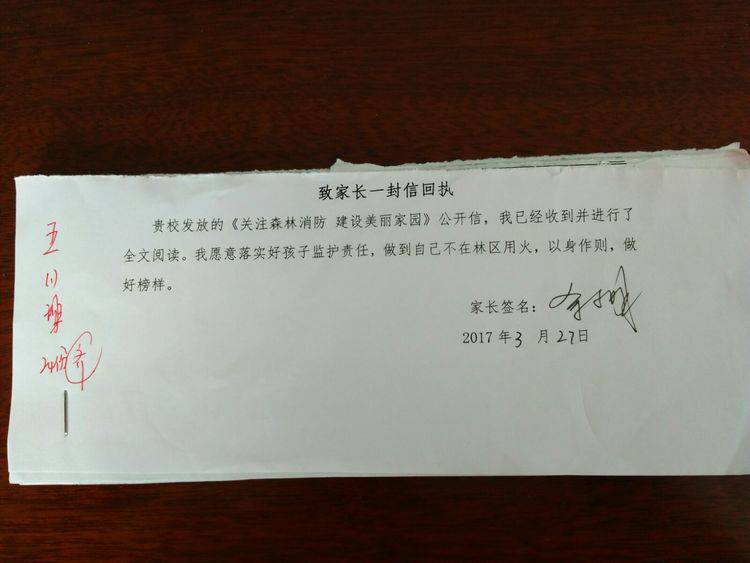 致家长一封信回执
贵校发放的《关注森林消防 建设美丽家园》公开信，我已经收到并进行了
全文阅读。我愿意落实好孩子监护责任，做到自己不在林区用火，以身作则，做
好榜样。
家长签名：
2017 年 3 月 27 日
五
(1)
班
24份 齐